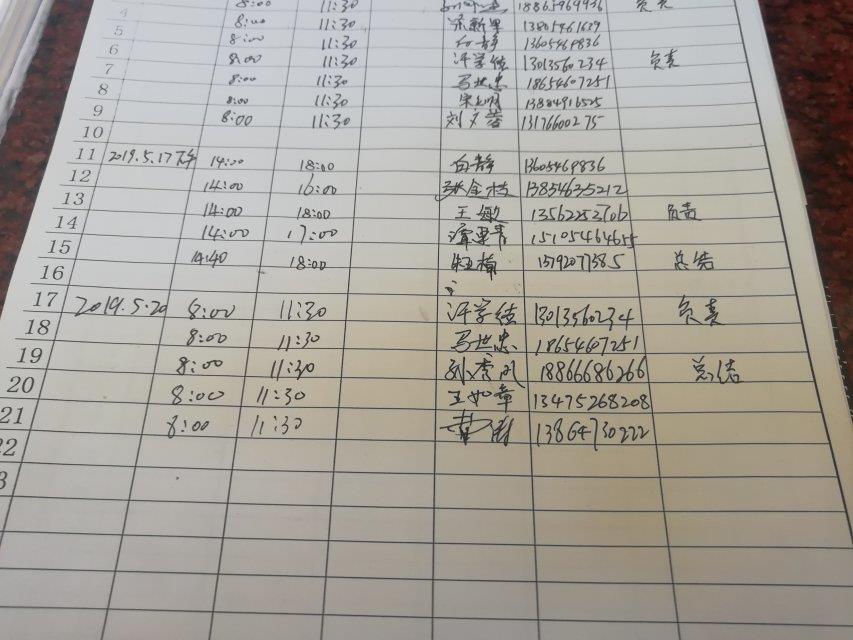 4 8:00 11:30 18865969936 负责
5 8:00 11:30 13805461629
6 8:00 11:30 白静 13605469836
7 8:00 11:30 汗学结 13013560234 负责
8 8:00 11:30 马世忠 18654607251
9 8:00 11:30 13884916525
10 8:00 11:30 刘文蓉 13176600275
11 2019.5.17下午 14:00 18:00 白静 13605469836
12 14:00 16:00 张金枝 13854635212
13 14:00 18:00 王敏 13562252706 负责
14 14:00 17:00 15105464655
15 14:40 18:00 13792077385 总结
16
17 2019.5.20 8:00 11:30 汗学结 13013560234 负责
18 8:00 11:30 马世忠 18654607251
19 8:00 11:30 刘秀凤 18866686266 总结
20 8:00 11:30 王如章 13475268208
21 8:00 11:30 13864730222
22
3